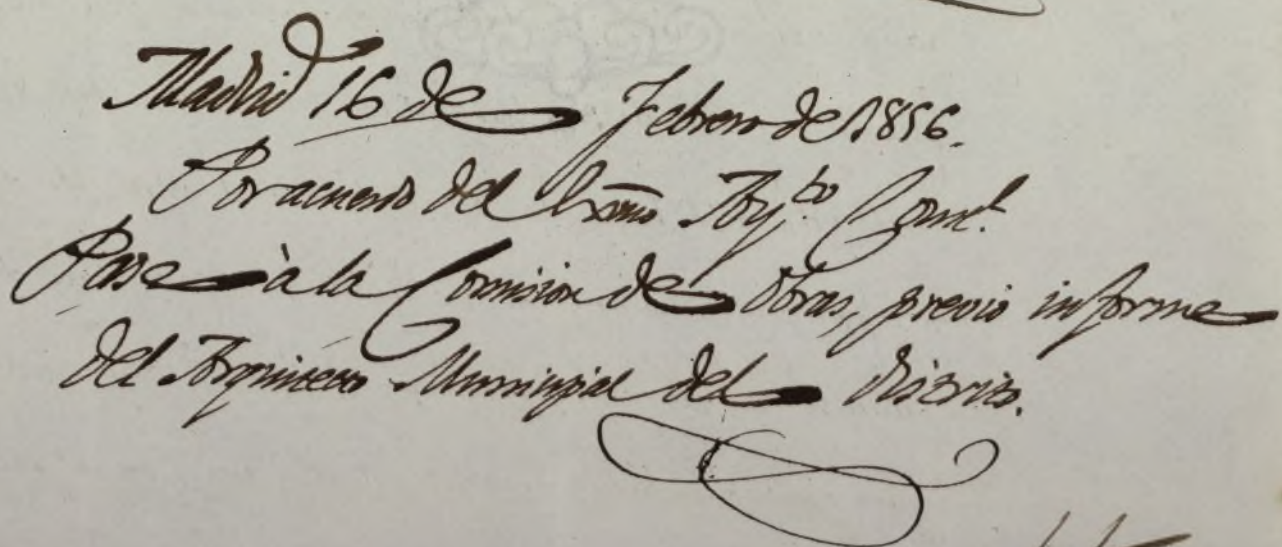 Madrid 16 de Febrero de 1856.
Por acuerdo del Excmo Ayto Const.
Pase à la Comision de Obras, previo informe
del Arquitecto Municipal del distrito.